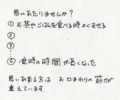 思いあたりませんか？
① お茶やごはんを食べる時よくむせる
②
③
④ 食事の時間が長くなった
思いあたる方は お口まわりの筋が
衰えています。